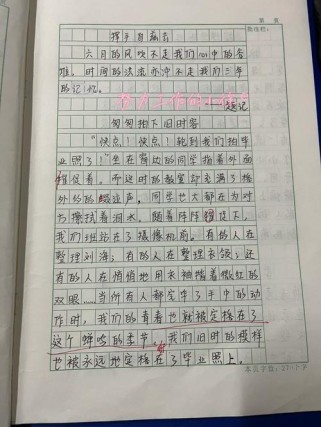 挥手自兹去
六月的风吹不走我们心中的眷
难，时间的洪流亦冲不走我们三年
的记忆。
——题记
匆匆拍下旧时容
“快点！快点！轮到我们拍毕
业照了！”坐在窗边的同学指着外面
催促着，而这时的教室却充满了格
外的
声。同学也大都在为对
方擦拭着泪水，随着阵阵
促下，
我们现站在了摄像机前。有的人在
整理刘海；有的人在整理衣领；还
有的人在悄悄地用衣袖揩着微红的
双眼……当所有人都定毕了手中的动
作时，我们的青春也就被定格在了
这个蝉鸣的季节。我们旧时的模样
也被永远地定格在了毕业照上。